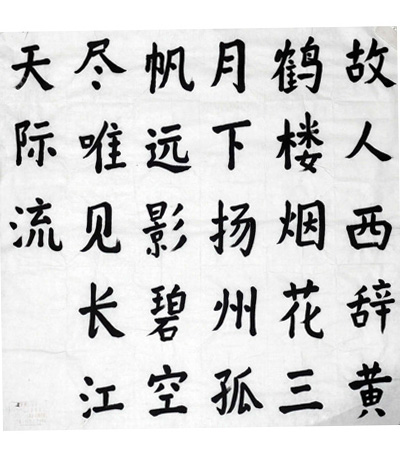 故人西辞黄
鹤楼烟花三
月下扬州孤
帆远影碧空
尽唯见长江
天际流